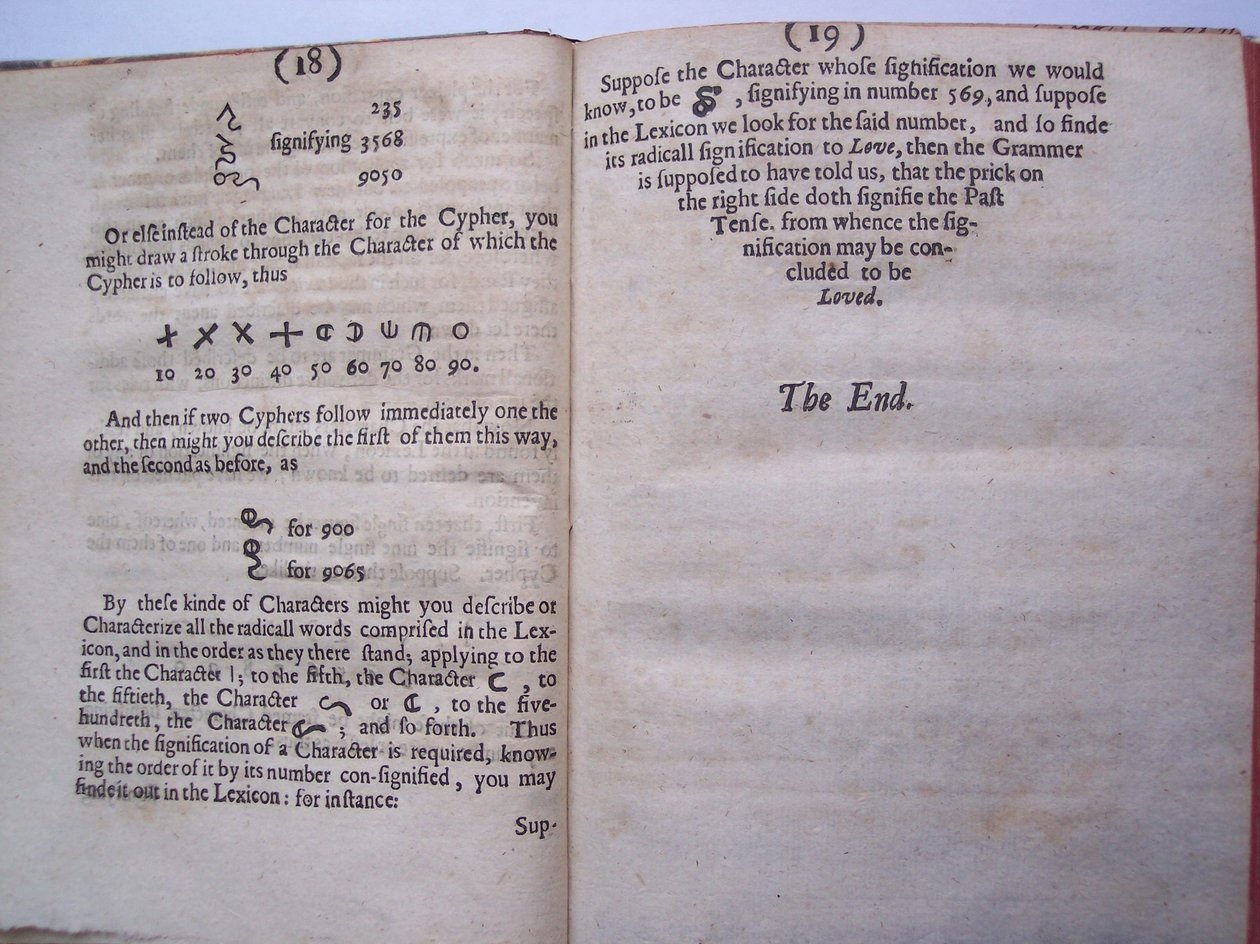 (18)
235
ſignifying 3568
9050
Or elſe inſtead of the Character for the Cypher, you
might draw a ſtroke through the Character of which the
Cypher is to follow, thus
10 20 30 40 50 60 70 80 90.
And then if two Cyphers follow immediately one the
other, then might you deſcribe the firſt of them this way,
and the ſecond as before, as
for 900
for 9065
By theſe kinde of Characters might you deſcribe or
Characterize all the radicall words compriſed in the Lex-
icon, and in the order as they there ſtand; applying to the
firſt the Character |; to the fifth, the Character , to
the fiftieth, the Character or , to the five-
hundreth, the Character ; and ſo forth. Thus
when the ſignification of a Character is required, know-
ing the order of it by its number con-ſignified, you may
finde it out in the Lexicon: for inſtance:
Sup-
(19)
Suppoſe the Character whoſe ſignification we would
know, to be , ſignifying in number 569, and ſuppoſe
in the Lexicon we look for the ſaid number, and ſo finde
its radicall ſignification to Love, then the Grammer
is ſuppoſed to have told us, that the prick on
the right ſide doth ſignifie the Paſt
Tenſe. from whence the ſig-
nification may be con-
cluded to be
Loved.
The End.